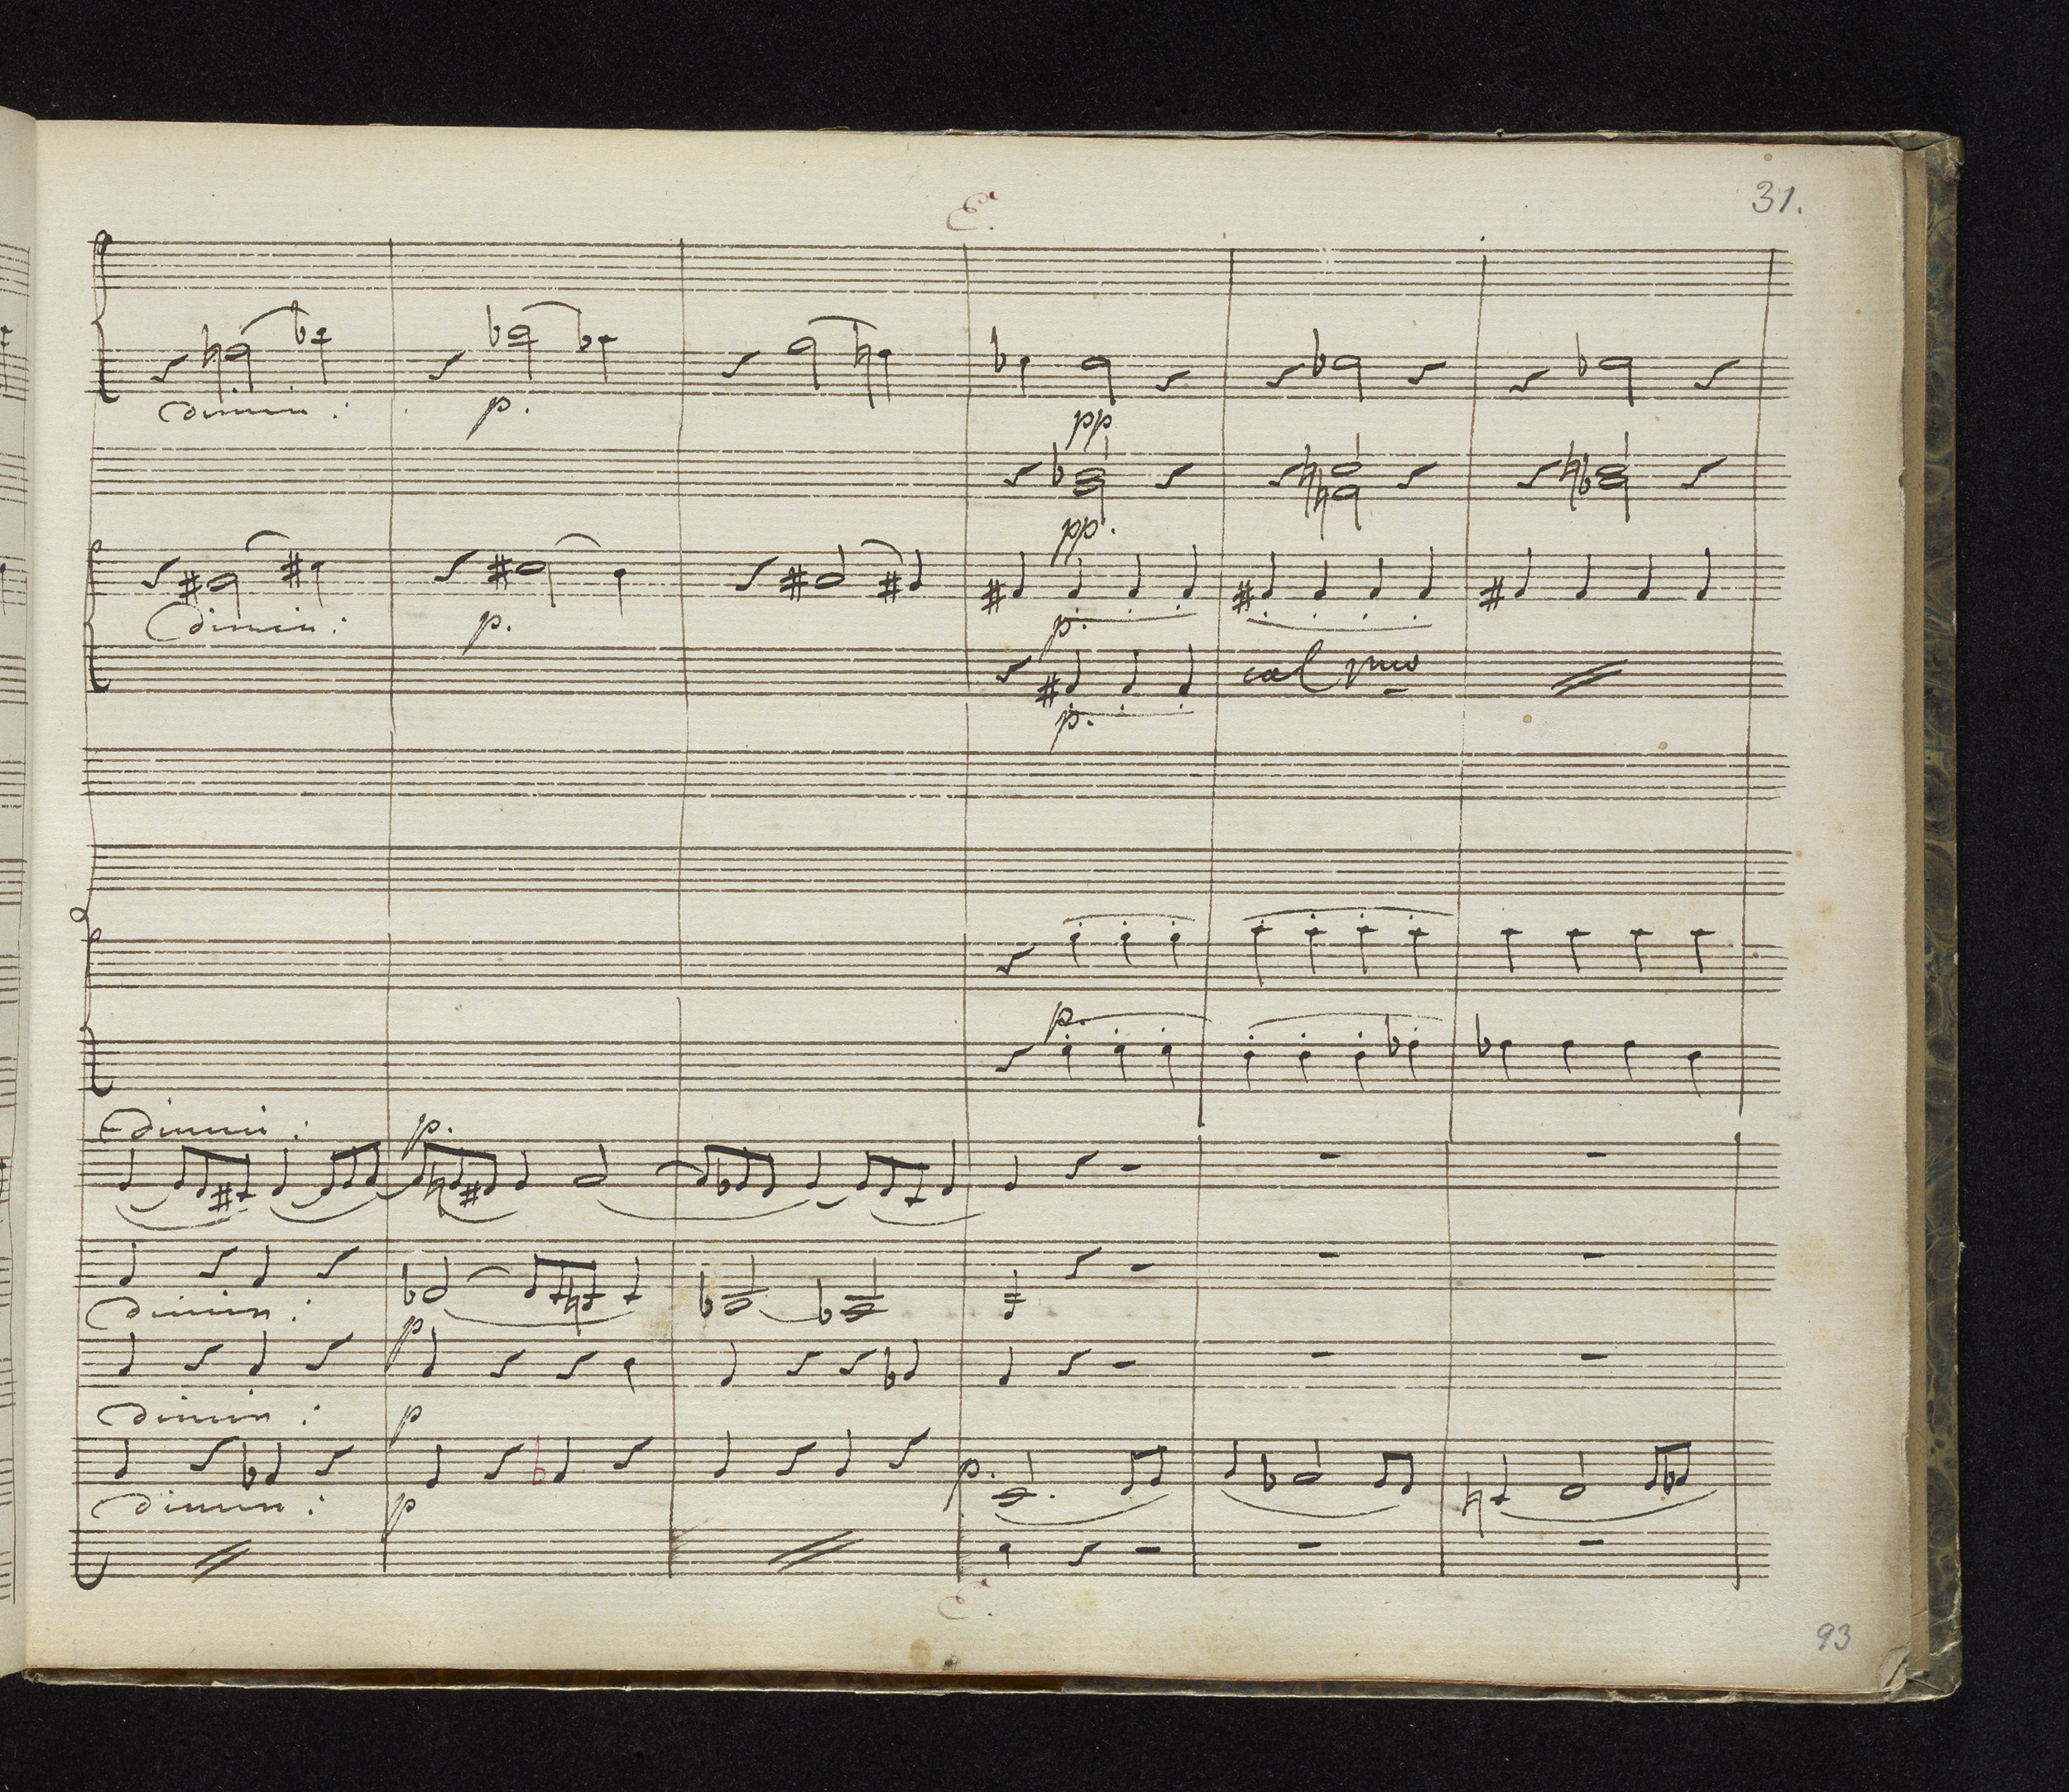 31.
E.
dimin:
p.
pp
pp.
dimin:
p.
p.
col pmo
p.
p.
dimin:
p.
dimin:
p
dimin:
p
p.
dimin:
p
E.
93